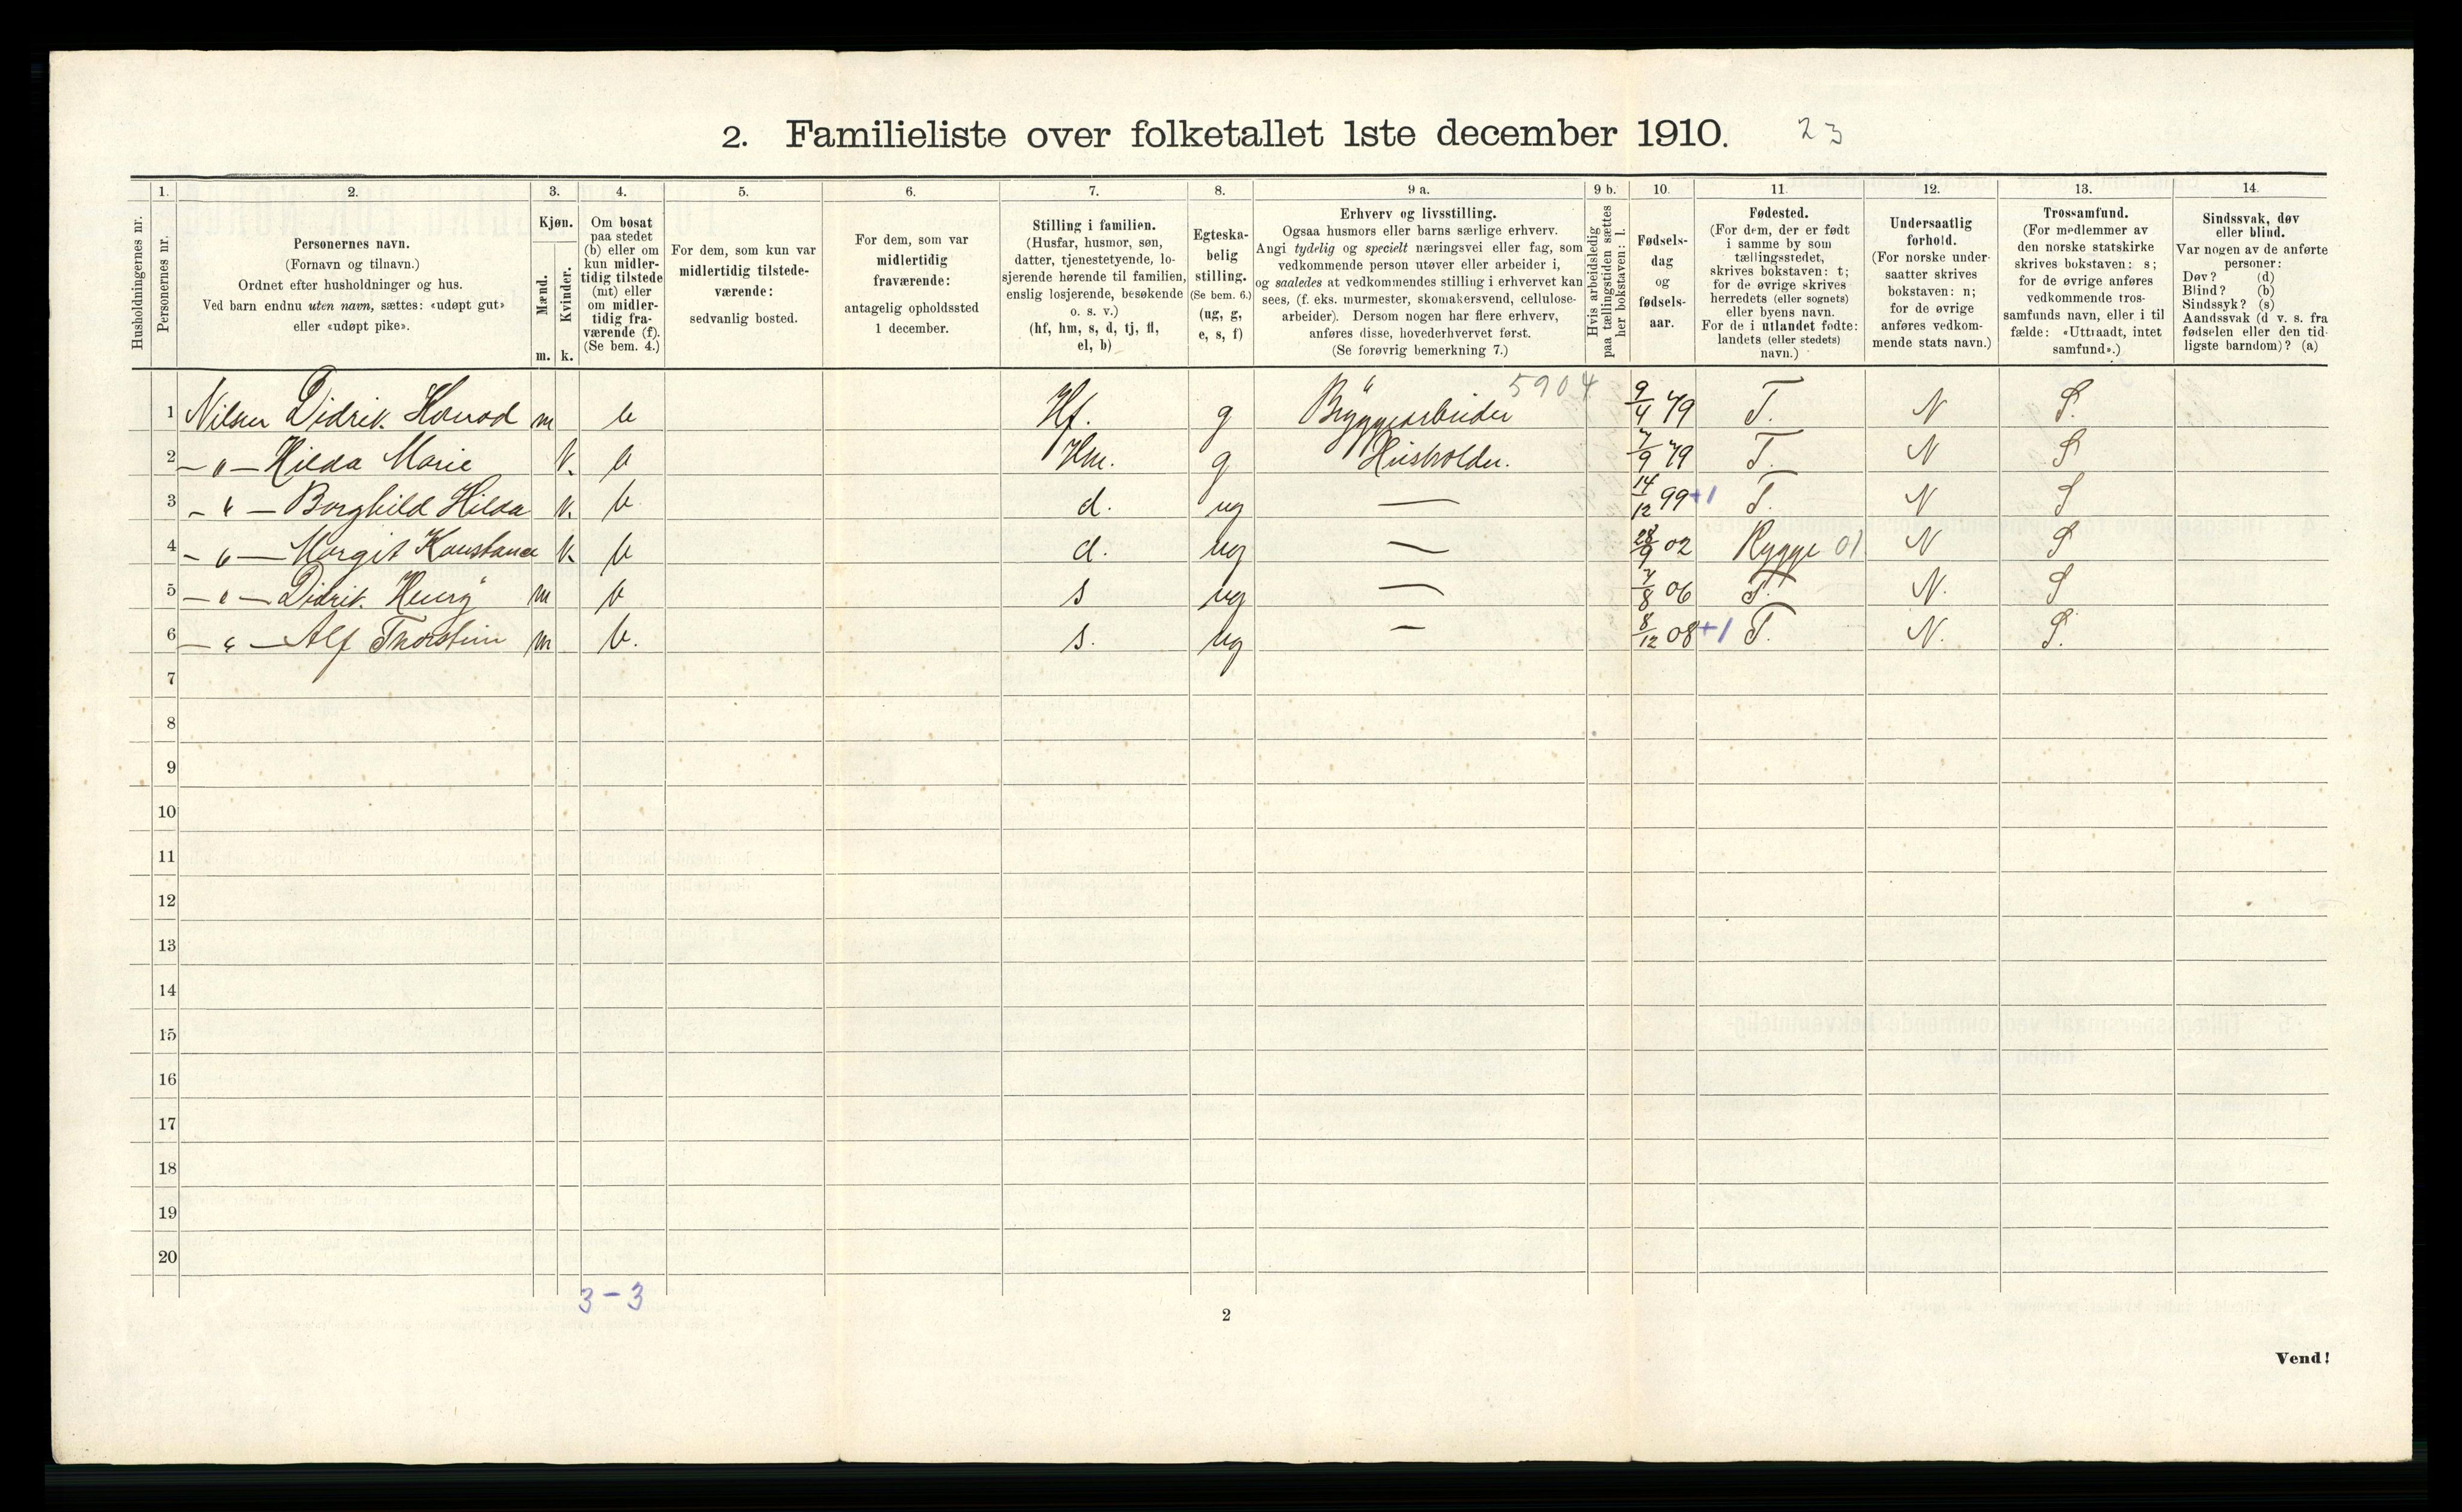 2. Familieliste over folketallet 1ste december 1910. 23
Husholdningernes nr.
1.
Personernes nr.
2.
Personernes navn.
(Fornavn og tilnavn.)
Ordnet efter husholdninger og hus.
Ved barn endnu uten navn, sættes: «udøpt gut»
eller «udøpt pike».
3.
Kjøn.
Mænd.
Kvinder.
m. k.
4.
Om bosat
paa stedet
(b) eller om
kun midler-
tidig tilstede
(mt) eller
om midler-
tidig fra-
værende (f).
(Se bem. 4.)
5.
For dem, som kun var
midlertidig tilstede-
værende:
sedvanlig bosted.
6.
For dem, som var
midlertidig
fraværende:
antagelig opholdssted
1 december.
7.
Stilling i familien.
(Husfar, husmor, søn,
datter, tjenestetyende, lo-
sjerende hørende til familien,
enslig losjerende, besøkende
o. s. v.)
(hf, hm, s, d, tj, fl,
el, b)
8.
Egteska-
belig
stilling.
(Se bem. 6.)
(ug, g,
e, s, f)
9 a.
Erhverv og livsstilling.
Ogsaa husmors eller barns særlige erhverv.
Angi tydelig og specielt næringsvei eller fag, som
vedkommende person utøver eller arbeider i,
og saaledes at vedkommendes stilling i erhvervet kan
sees, (f. eks. murmester, skomakersvend, cellulose-
arbeider). Dersom nogen har flere erhverv,
anføres disse, hovederhvervet først.
(Se forøvrig bemerkning 7.)
9 b.
Hvis arbeidsledig
paa tællingstiden sættes
her bokstaven: l.
10.
Fødsels-
dag
og
fødsels-
aar.
11.
Fødested.
(For dem, der er født
i samme by som
tællingsstedet,
skrives bokstaven: t;
for de øvrige skrives
herredets (eller sognets)
eller byens navn.
For de i utlandet fødte:
landets (eller stedets)
navn.)
12.
Undersaatlig
forhold.
(For norske under-
saatter skrives
bokstaven: n;
for de øvrige
anføres vedkom-
mende stats navn.)
13.
Trossamfund.
(For medlemmer av
den norske statskirke
skrives bokstaven: s;
for de øvrige anføres
vedkommende tros-
samfunds navn, eller i til
fælde: «Uttraadt, intet
samfund».)
14.
Sindssvak, døv
eller blind.
Var nogen av de anførte
personer:
Døv? (d)
Blind? (b)
Sindssyk? (s)
Aandssvak (d v. s. fra
fødselen eller den tid-
ligste barndom)? (a)
5904
1 Nilsen Didrik Konrad m b Hf. g Bryggearbeider 9/4 79 T. N S.
2 – " – Hilda Marie k. b Hm. g Husholder. 7/9 79 T. N S
3 – " – Borghild Hilda k. b d. ug — 14/12 99 +1 T. N S
4 – " – Margit Konstance k b d. ug — 28/9 02 Rygge 01 N S
5 – " – Didrik Henry m b s ug — 7/8 06 T. N. S
6 – " – Alf Thorstein m b. s. ug — 8/12 08 +1 T. N. S.
7
8
9
10
11
12
13
14
15
16
17
18
19
20
3 – 3
2
Vend!